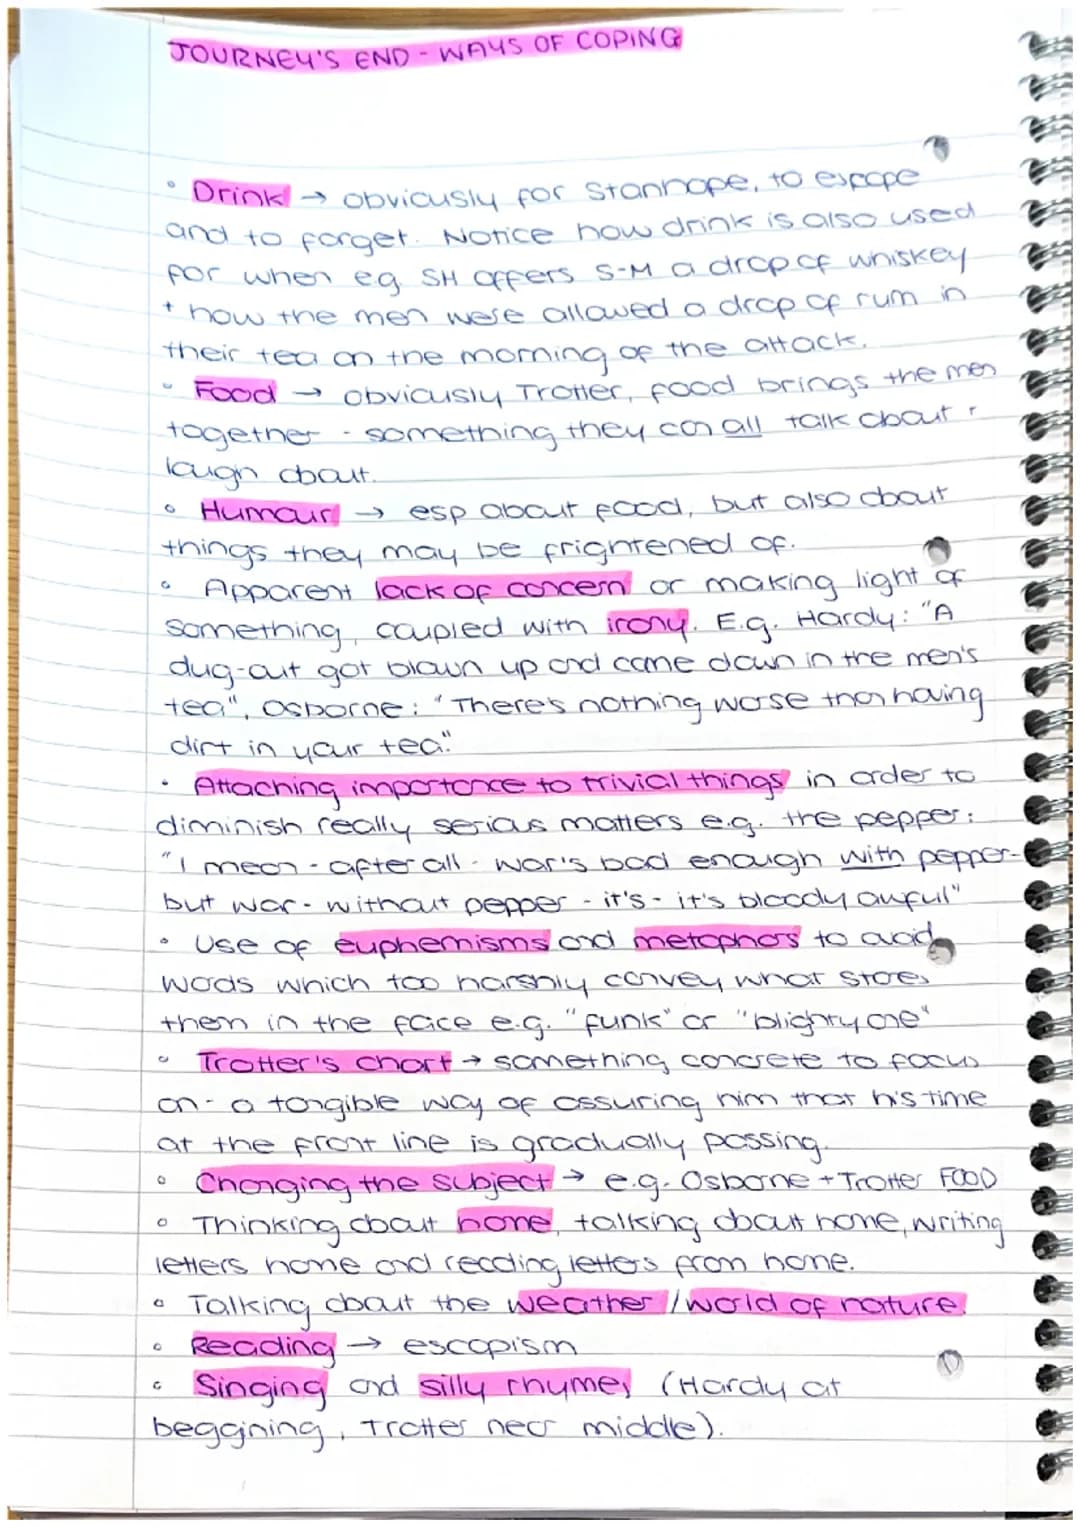 JOURNEY'S END - WAYS OF COPING
◦ Drink → obviously for Stanhope, to escape
and to forget. Notice how drink is also used
for when e.g SH offers S-M a drop of whiskey
+ how the men were allowed a drop of rum in
their tea on the morning of the attack.
◦ Food → obviously Trotter, food brings the men
together - something they can all talk about +
laugh about.
◦ Humour → esp about food, but also about
things they may be frightened of.
◦ Apparent lack of concern or making light of
something, coupled with irony. E.g. Hardy: "A
dug-out got blown up and came down in the men's
tea", Osborne: "There's nothing worse than having
dirt in your tea."
• Attaching importance to trivial things in order to
diminish really serious matters e.g. the pepper:
"I mean - after all - war's bad enough with pepper -
but war - without pepper - it's - it's bloody awful"
• Use of euphemisms and metaphors to avoid
words which too harshly convey what stares
them in the face e.g. "funk" or "blighty one"
◦ Trotter's chart → something concrete to focus
on - a tangible way of assuring him that his time
at the front line is gradually passing.
◦ Changing the subject → e.g. Osborne + Trotter FOOD
◦ Thinking about home, talking about home, writing
letters home and reading letters from home.
◦ Talking about the weather / world of nature.
◦ Reading → escapism
◦ Singing and silly rhymes (Hardy at
beggining, Trotter near middle).